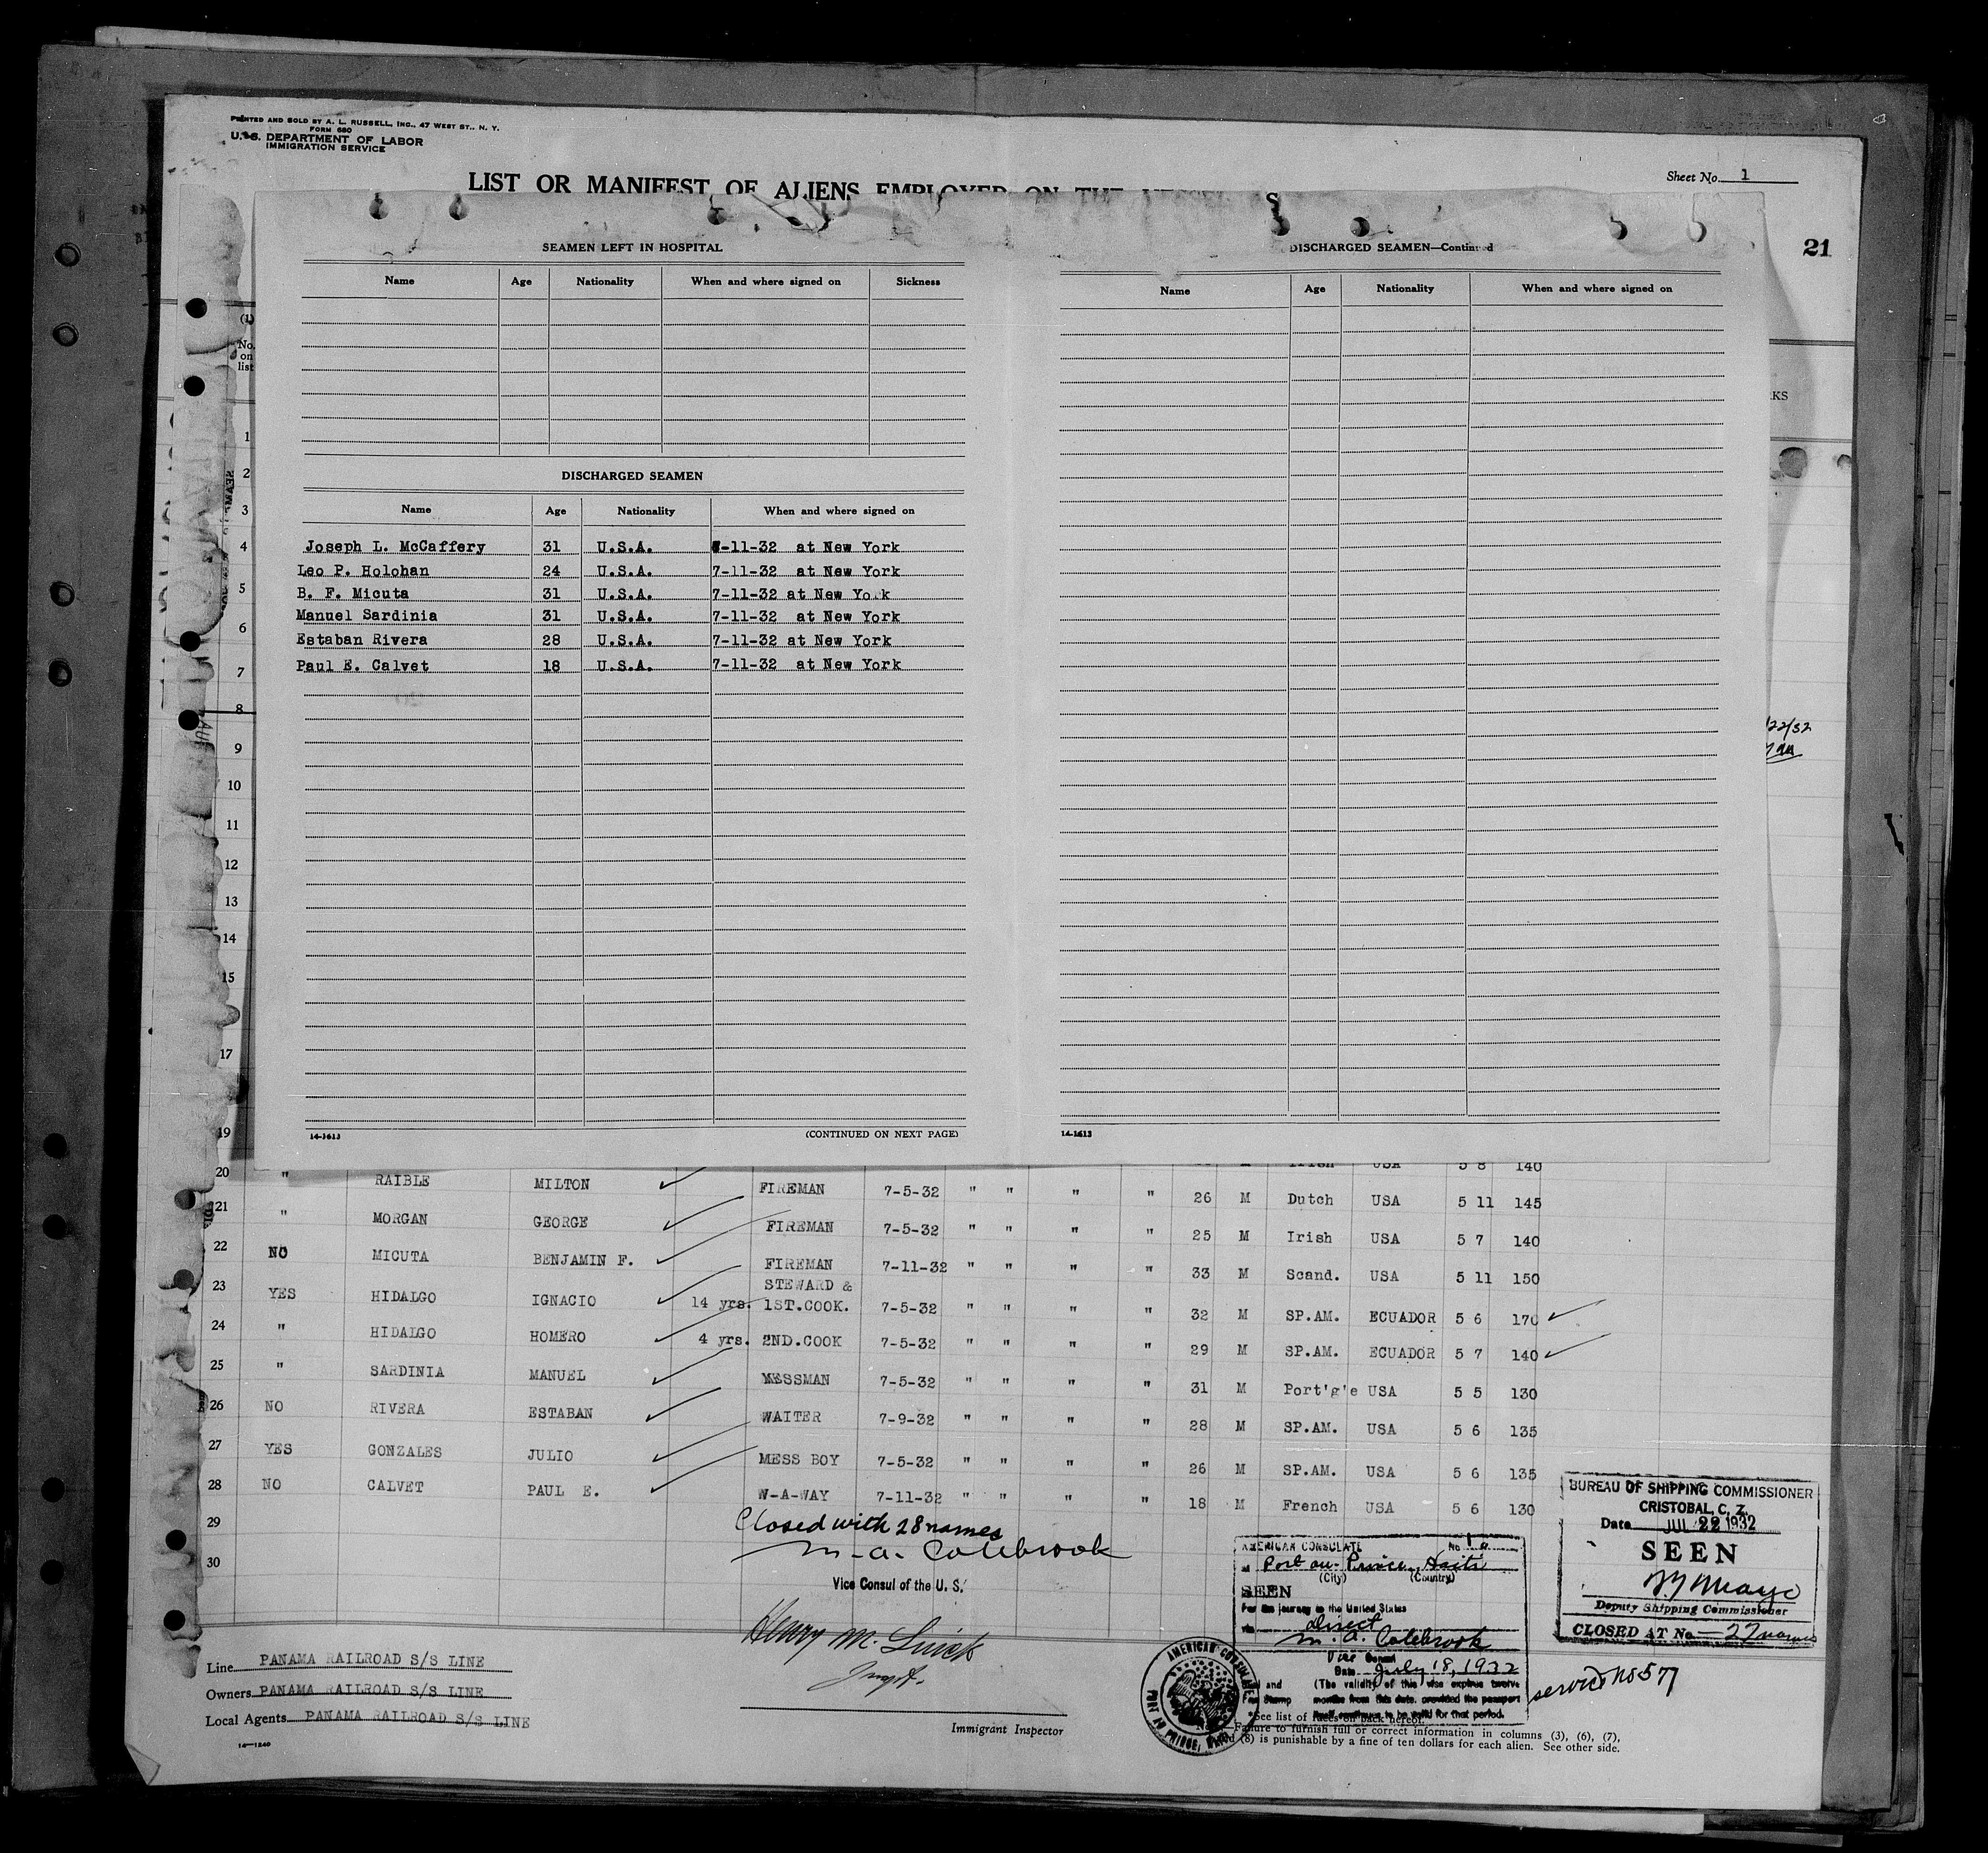 PRINTED AND SOLD BY A. L. RUSSELL, INC., 47 WEST ST., N. Y.
FORM 680
U. S. DEPARTMENT OF LABOR
IMMIGRATION SERVICE
LIST OR MANIFEST OF ALIENS EMPLOYED ON THE
Sheet No. 1
21
SEAMEN LEFT IN HOSPITAL
Name Age Nationality When and where signed on Sickness
DISCHARGED SEAMEN
Name Age Nationality When and where signed on
Joseph L. McCaffery 31 U.S.A. 7-11-32 at New York
Leo P. Holohan 24 U.S.A. 7-11-32 at New York
B. F. Micuta 31 U.S.A. 7-11-32 at New York
Manuel Sardinia 31 U.S.A. 7-11-32 at New York
Estaban Rivera 28 U.S.A. 7-11-32 at New York
Paul E. Calvet 18 U.S.A. 7-11-32 at New York
14-1613 (CONTINUED ON NEXT PAGE)
DISCHARGED SEAMEN—Continued
Name Age Nationality When and where signed on
14-1613
(1)
No.
on
list
KS
1
2
3
4
5
6
7
8
9
10
11
12
13
14
15
17
19
22/32
20 " RAIBLE MILTON FIREMAN 7-5-32 " " " " 26 M Dutch USA 5 11 145
21 " MORGAN GEORGE FIREMAN 7-5-32 " " " " 25 M Irish USA 5 7 140
22 NO MICUTA BENJAMIN F. FIREMAN 7-11-32 " " " " 33 M Scand. USA 5 11 150
23 YES HIDALGO IGNACIO 14 yrs. STEWARD & 1ST.COOK. 7-5-32 " " " " 32 M SP.AM. ECUADOR 5 6 170
24 " HIDALGO HOMERO 4 yrs. 2ND.COOK 7-5-32 " " " " 29 M SP.AM. ECUADOR 5 7 140
25 " SARDINIA MANUEL MESSMAN 7-5-32 " " " " 31 M Port'g'e USA 5 5 130
26 NO RIVERA ESTABAN WAITER 7-9-32 " " " " 28 M SP.AM. USA 5 6 135
27 YES GONZALES JULIO MESS BOY 7-5-32 " " " " 26 M SP.AM. USA 5 6 135
28 NO CALVET PAUL E. W-A-WAY 7-11-32 " " " " 18 M French USA 5 6 130
29
30
Closed with 28 names
M. A. Colebrook
Vice Consul of the U. S.
Henry M.
Immigrant Inspector
Line PANAMA RAILROAD S/S LINE
Owners PANAMA RAILROAD S/S LINE
Local Agents PANAMA RAILROAD S/S LINE
14—1240
AMERICAN CONSULATE
at Port au-Prince, Haiti
(City) (Country)
SEEN
For the journey to the United States
via direct
M. A. Colebrook
Vice Consul
Date July 18, 1932
(The validity of this visa expires twelve
months from this date, provided the passport
itself continues to be valid for that period.
AMERICAN CONSULATE
PORT AU PRINCE, HAITI
service no 577
*See list of races on back hereof.
Failure to furnish full or correct information in columns (3), (6), (7),
(8) is punishable by a fine of ten dollars for each alien. See other side.
BUREAU OF SHIPPING COMMISSIONER
CRISTOBAL, C. Z.
Date JUL 22 1932
SEEN
Deputy Shipping Commissioner
CLOSED AT No. 27 names